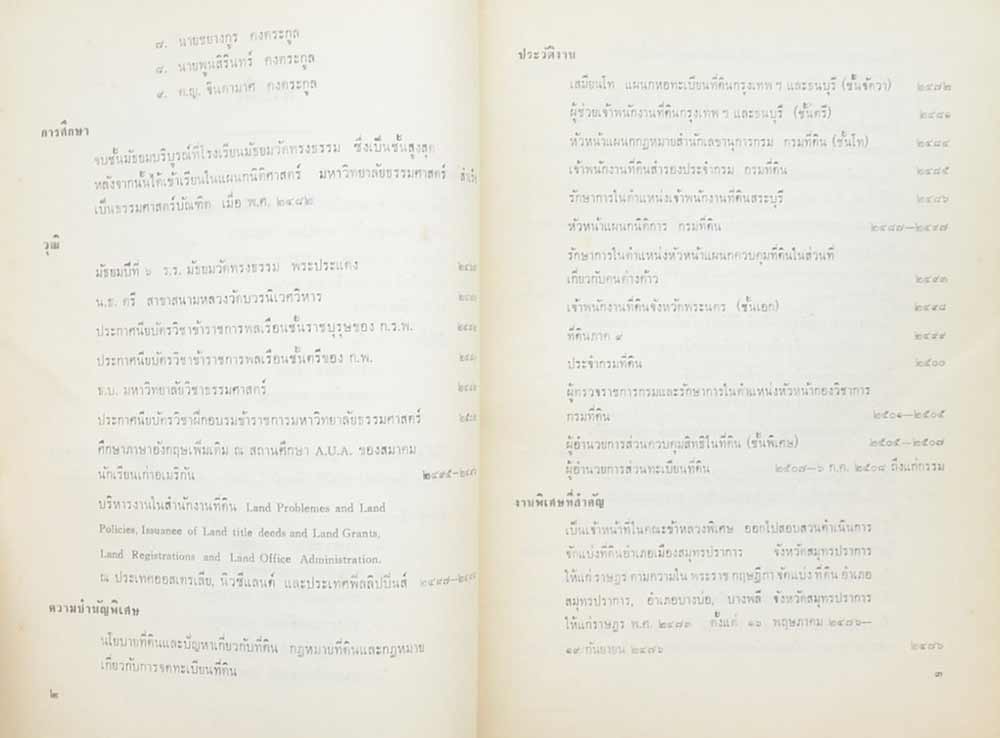 ๗. นายชยางกูร คงตระกูล
๘. นายพูนสิรินทร์ คงตระกูล
๙. ด.ญ. จินดามาศ คงตระกูล
การศึกษา
จบชั้นมัธยมบริบูรณ์ที่โรงเรียนมัธยมวัดทรงธรรม ซึ่งเป็นชั้นสูงสุด
หลังจากนั้นได้เข้าเรียนในแผนกนิติศาสตร์ มหาวิทยาลัยธรรมศาสตร์
เป็นธรรมศาสตร์บัณฑิต เมื่อ พ.ศ. ๒๔๘๒
วุฒิ
มัธยมปีที่ ๖ ร.ร. มัธยมวัดทรงธรรม พระประแดง
น.ธ. ตรี สาขาสนามหลวงวัดบวรนิเวศวิหาร
ประกาศนียบัตรวิชาข้าราชการพลเรือนชั้นราชบุรุษของ ก.ร.พ.
ประกาศนียบัตรวิชาข้าราชการพลเรือนชั้นตรีของ ก.พ.
ธ.บ. มหาวิทยาลัยวิชาธรรมศาสตร์
ประกาศนียบัตรวิชาฝึกอบรมข้าราชการมหาวิทยาลัยธรรมศาสตร์
ศึกษาภาษาอังกฤษเพิ่มเติม ณ สถานศึกษา A.U.A. ของสมาคม
นักเรียนเก่าอเมริกัน
บริหารงานในสำนักงานที่ดิน Land Problemes and Land
Policies, Issuanee of Land title deeds and Land Grants,
Land Registrations and Land Office Administration.
ณ ประเทศออสเตรเลีย, นิวซีแลนด์ และประเทศฟิลลิปปินส์
ความชำนัญพิเศษ
นโยบายที่ดินและปัญหาเกี่ยวกับที่ดิน กฎหมายที่ดินและกฎหมาย
เกี่ยวกับการจดทะเบียนที่ดิน
๒
ประวัติงาน
เสมียนโท แผนกหอทะเบียนที่ดินกรุงเทพ ฯ และธนบุรี (ชั้นจัตวา) ๒๔๗๒
ผู้ช่วยเจ้าพนักงานที่ดินกรุงเทพ ฯ และธนบุรี (ชั้นตรี) ๒๔๘๑
หัวหน้าแผนกกฎหมายสำนักเลขานุการกรม กรมที่ดิน (ชั้นโท) ๒๔๘๔
เจ้าพนักงานที่ดินสำรองประจำกรม กรมที่ดิน ๒๔๘๕
รักษาการในตำแหน่งเจ้าพนักงานที่ดินสระบุรี ๒๔๘๖
หัวหน้าแผนกนิติการ กรมที่ดิน ๒๔๘๗—๒๔๙๗
รักษาการในตำแหน่งหัวหน้าแผนกควบคุมที่ดินในส่วนที่
เกี่ยวกับคนต่างด้าว ๒๔๙๓
เจ้าพนักงานที่ดินจังหวัดพระนคร (ชั้นเอก) ๒๔๙๘
ที่ดินภาค ๙ ๒๔๙๙
ประจำกรมที่ดิน ๒๕๐๐
ผู้ตรวจราชการกรมและรักษาการในตำแหน่งหัวหน้ากองวิชาการ
กรมที่ดิน ๒๕๐๑—๒๕๐๕
ผู้อำนวยการส่วนควบคุมสิทธิในที่ดิน (ชั้นพิเศษ) ๒๕๐๕—๒๕๐๗
ผู้อำนวยการส่วนทะเบียนที่ดิน ๒๕๐๗—๖ ก.ค. ๒๕๐๘ ถึงแก่กรรม
งานพิเศษที่สำคัญ
เป็นเจ้าหน้าที่ในคณะข้าหลวงพิเศษ ออกไปสอบสวนดำเนินการ
จัดแบ่งที่ดินอำเภอเมืองสมุทรปราการ จังหวัดสมุทรปราการ
ให้แก่ราษฎร ตามความใน พระราช กฤษฎีกา จัดแบ่ง ที่ดิน อำเภอ
สมุทรปราการ, อำเภอบางบ่อ, บางพลี จังหวัดสมุทรปราการ
ให้แก่ราษฎร พ.ศ. ๒๔๘๓ ตั้งแต่ ๑๖ พฤษภาคม ๒๔๘๖—
๑๙ กันยายน ๒๔๘๖ ๒๔๘๖
๓